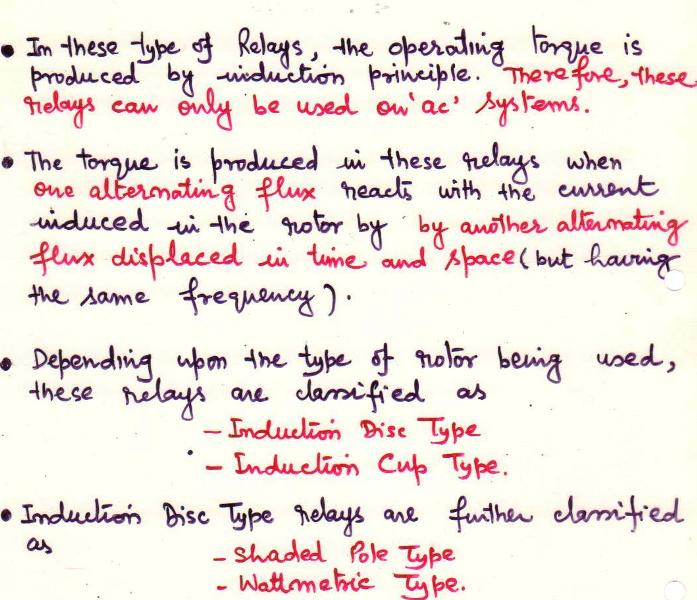 • In these type of Relays, the operating torque is
produced by induction principle. Therefore, these
relays can only be used on 'ac' systems.
• The torque is produced in these relays when
one alternating flux reacts with the current
induced in the rotor by by another alternating
flux displaced in time and space (but having
the same frequency).
• Depending upon the type of rotor being used,
these relays are classified as
– Induction Disc Type
– Induction Cup Type.
• Induction Disc Type relays are further classified
as
– Shaded Pole Type
– Wattmetric Type.